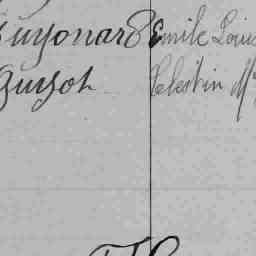 Guyonard Emile Louis
Guyot Célestin